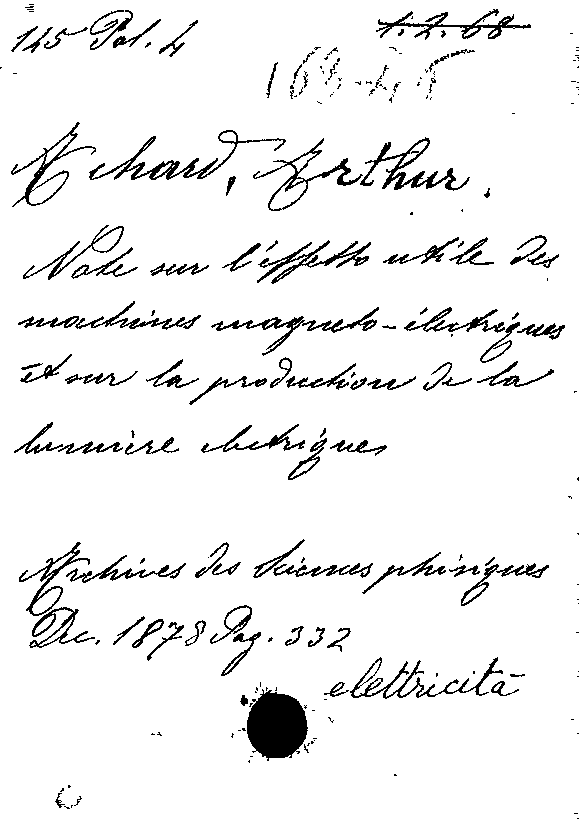 145 Pol. 4
1. 2. 68
168-45
Achard, Arthur.
Note sur l'effetto utile des
machines magneto-électriques
et sur la production de la
lumière electriques
Archives des Sciences phisiques
Dec. 1878 Pag. 332
elettricità